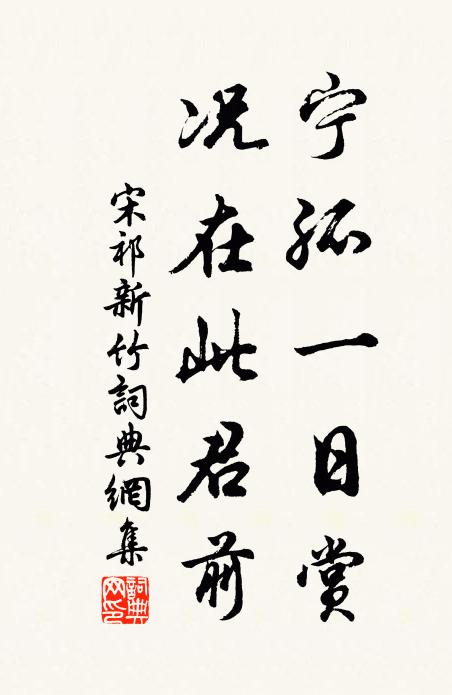 宁孤一日赏
况在此君前
宋祁新竹詞典網集
詞典网印